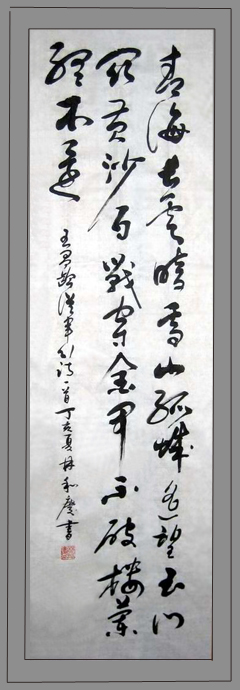 青海長雲暗雪山孤城遙望玉門
關黃沙百戰穿金甲不破樓蘭
終不還
王昌齡從軍行詩一首丁亥夏林和書